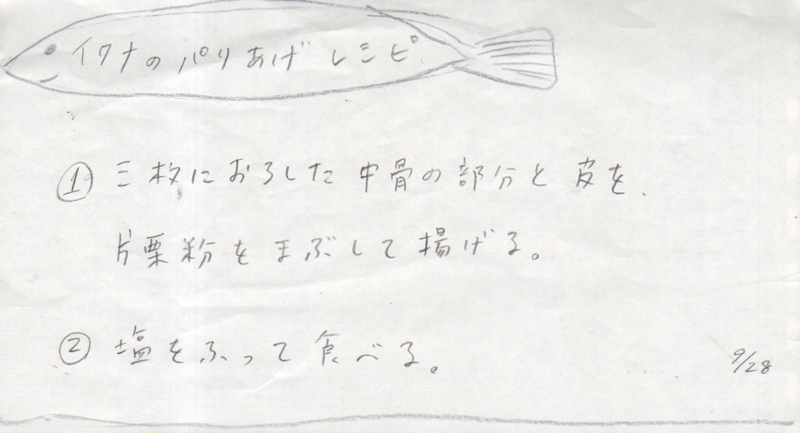 イワナのパリあげレシピ
① 三枚におろした中骨の部分と皮を、
片栗粉をまぶして揚げる。
② 塩をふって食べる。
9/28